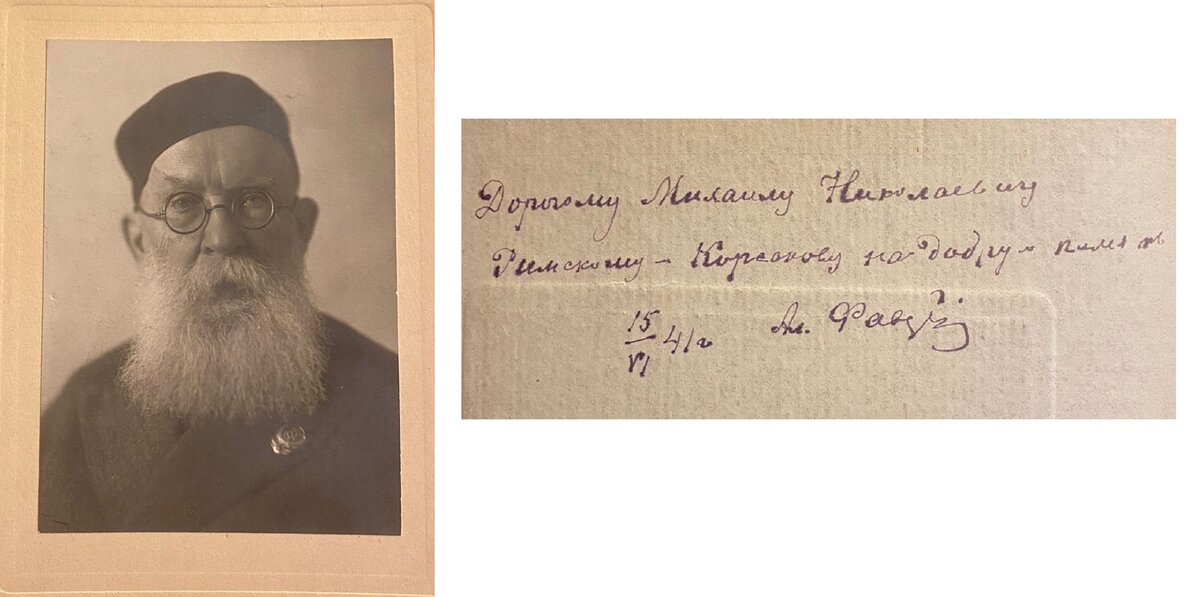 Дорогому Михаилу Николаевичу
Римскому - Корсакову на добрую память
15/VI 41 г Ал.